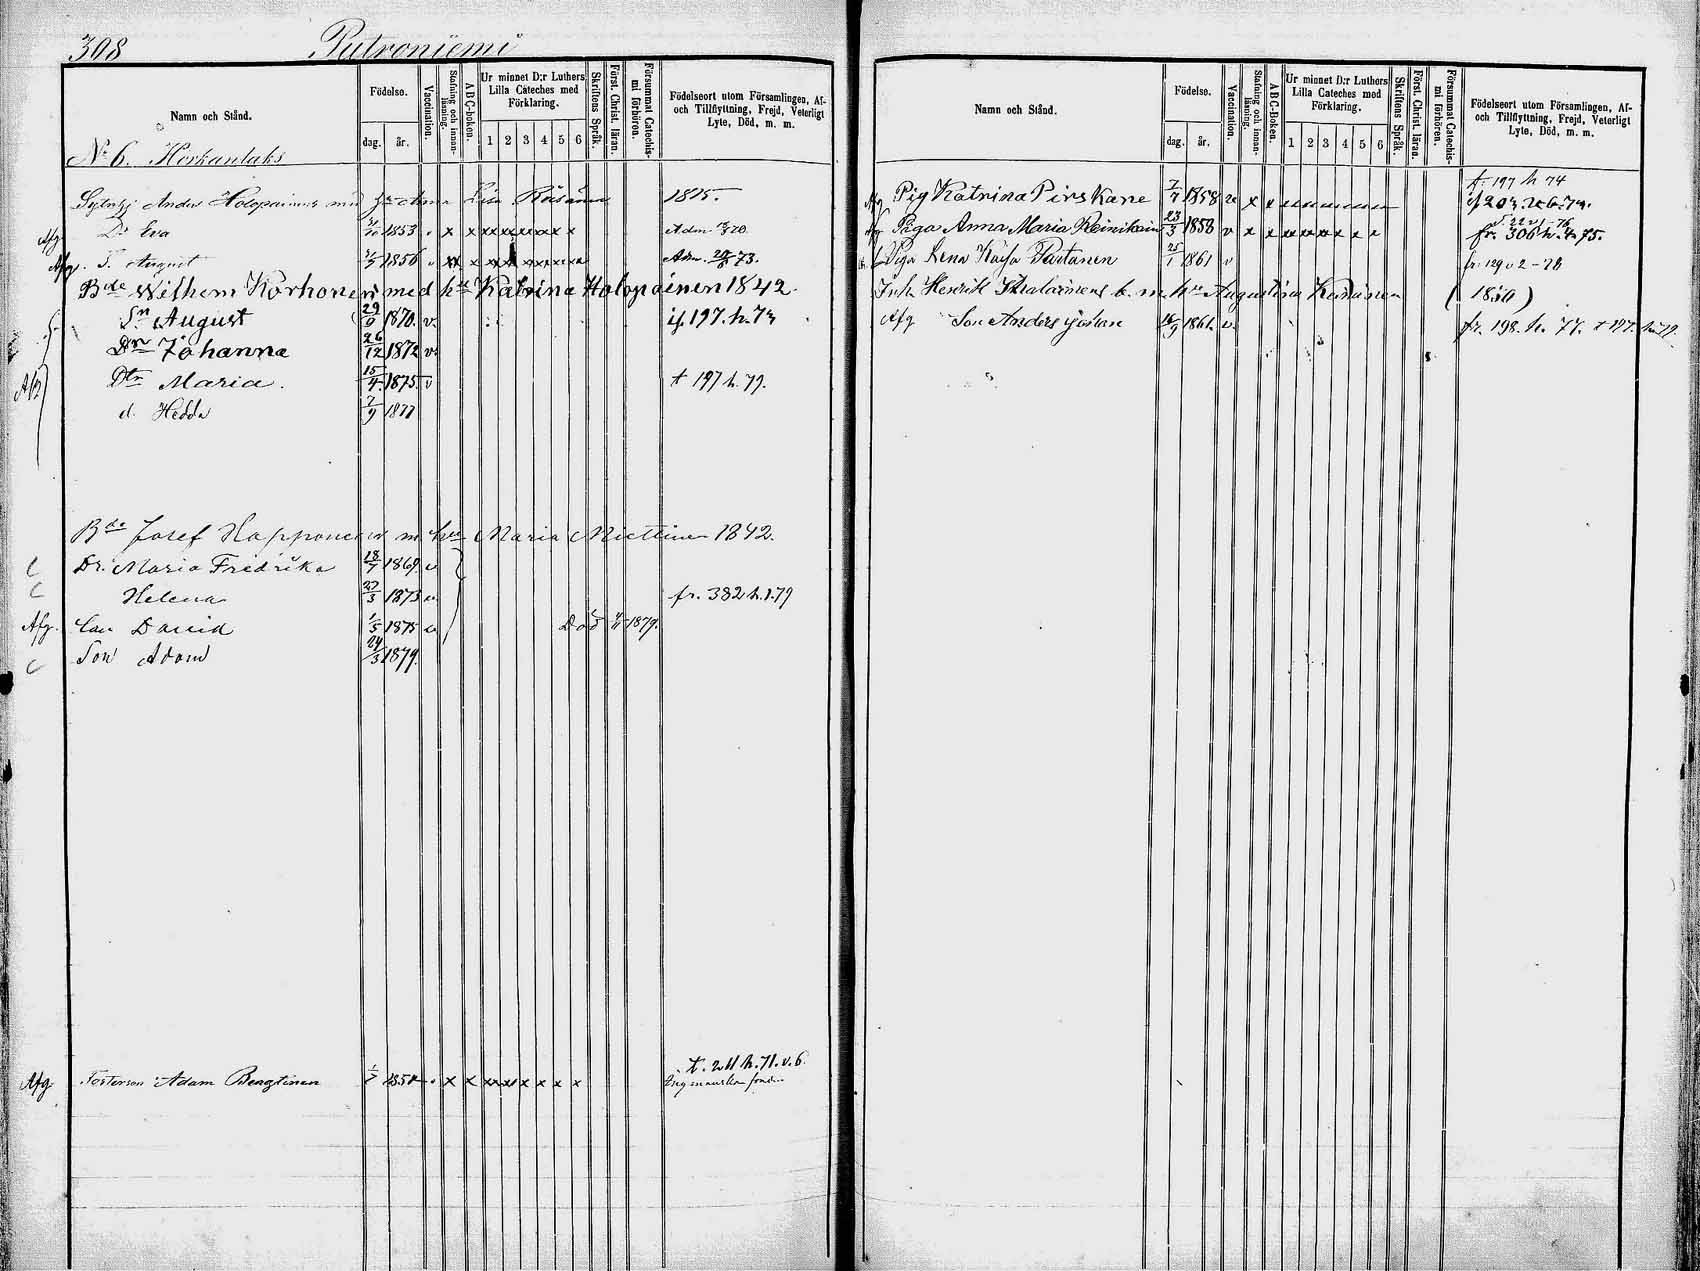 308 Putroniemi
Namn och Stånd.
Födelse.
dag. år.
Vaccination.
Stafning och innanläsning.
A B C-boken.
Ur minnet D:r Luthers Lilla Cateches med Förklaring.
1 2 3 4 5 6
Skriftens Språk.
Först. Christ. läran.
Försummat Catechismi förhören.
Födelseort utom Församlingen, Af- och Tillflyttning, Frejd, Veterligt Lyte, Död, m. m.
No 6. Horkanlaks
Anders Holopainen med Anna Lisa Räsänen 1815.
Afg. Dr Eva 1853 v x x x x x x x x Adm. 70.
Afg. S. August 1856 v x x x x x x x x Adm. 73.
Bde Wilhem Korhonen med hu Katrina Holopainen 1842.
Sn August 29/9 1870. v. if. 197. h. 73
Dr Johanna 26/12 1872 v.
Afg Dtr Maria. 15/4 1875. v t 197 h. 79.
d. Hedda 7/9 1877
Bde Josef Happonen m. hu Maria Miettinen 1842.
Dr. Maria Fredrika 18/7 1869. v
Helena 27/3 1873 v. fr. 382 h. 1. 79
Afg. Son David 1/5 1875 v. Död 1879.
Son Adam 24/3 1879.
Afg Adam Bengtinen 1/7 185 x x x x x x x x t. 211 h. 71. v. 6.
Namn och Stånd.
Födelse.
dag. år.
Vaccination.
Stafning och innanläsning.
A B C-Boken.
Ur minnet D:r Luthers Lilla Cateches med Förklaring.
1 2 3 4 5 6
Skriftens Språk.
Först. Christ. läran.
Försummat Catechismi förhören.
Födelseort utom Församlingen, Af- och Tillflyttning, Frejd, Veterligt Lyte, Död, m. m.
t. 197 h 74
Afg Pig Katrina Pirskane 7/7 1858 x x
Afg Piga Anna Maria Reinikain 23/3 1858 v x x x x x x x x fr. 306 h. 4. 75.
Piga Lena Kajsa Partanen 25/1 1861 v fr. 129 v 2-78
Inh. Henrik m. hu Augustina (1850)
Afg Son Anders Johan 16/9 1861. v. fr. 198. h. 77. t 197. h. 79.